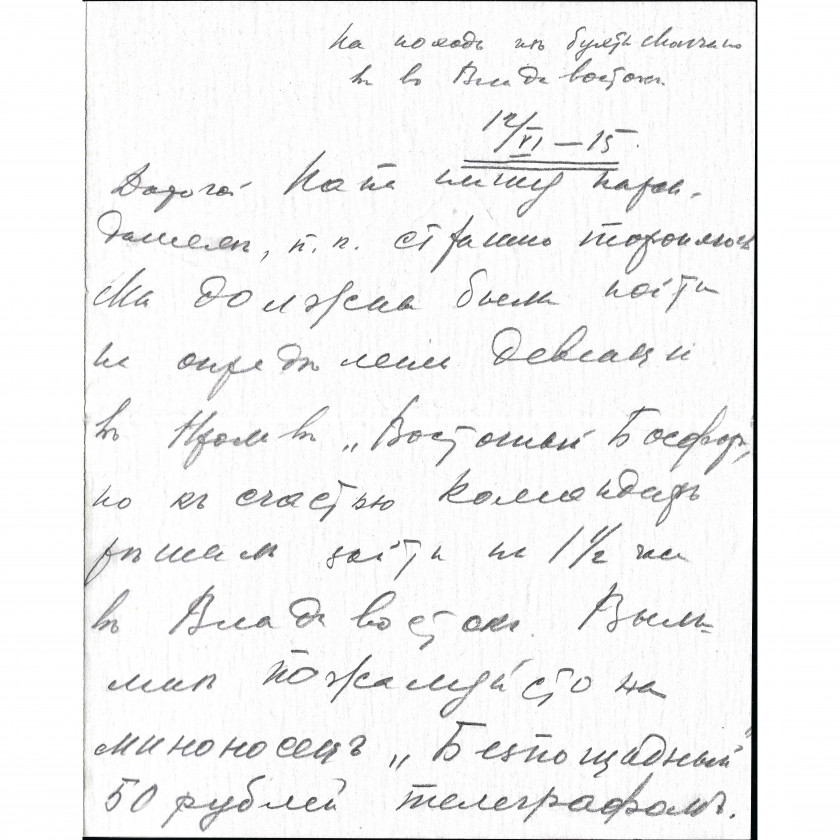 На походѣ изъ бухты
въ Владивостокъ.
12/VI – 15.
Дорогой папа пишу каран-
дашемъ, т.к. страшно тороплюсь
Мы должны были пойти
на опредѣленiе девiацiи
въ проливъ „Восточный Босфоръ",
но къ счастью командиръ
рѣшилъ зайти на 1 1/2 часа
въ Владивостокъ. Вышли
мнѣ пожалуйсто на
миноносецъ „Безпощадный"
50 рублей телеграфомъ.